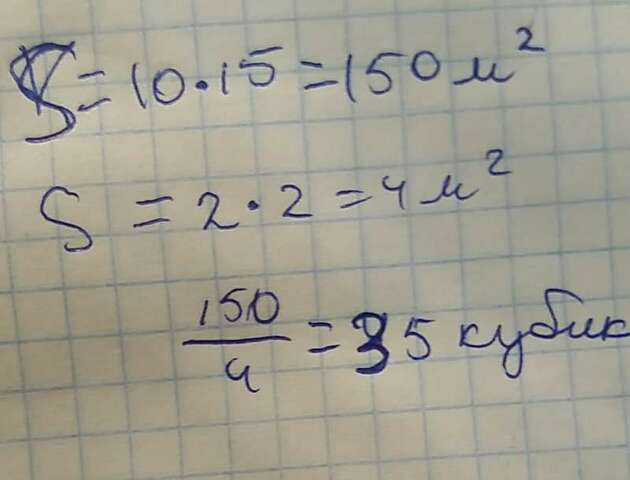 S = 10 · 15 = 150 м²
S = 2 · 2 = 4 м²
150/4 = 35 кубик